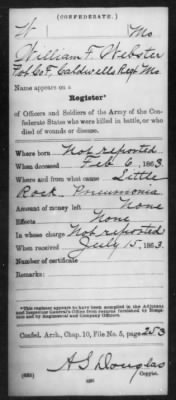 (CONFEDERATE.)
W Mo
William F. Webster
Co. F. Caldwells Regt Mo.
Name appears on a
Register*
of Officers and Soldiers of the Army of the Con-
federate States who were killed in battle, or who
died of wounds or disease.
Where born Not reported
When deceased Feb 6, 1863
Where and from what cause Little
Rock Pneumonia
Amount of money left None
Effects None
In whose charge Not reported
When received July 15, 1863.
Number of certificate
Remarks:
*This register appears to have been compiled in the Adjutant
and Inspector General's Office from returns furnished by Hospi-
tals and by Regimental and Company Officers.
Confed. Arch., Chap. 10, File No. 5, page 253
A S Douglas
(635) Copyist.